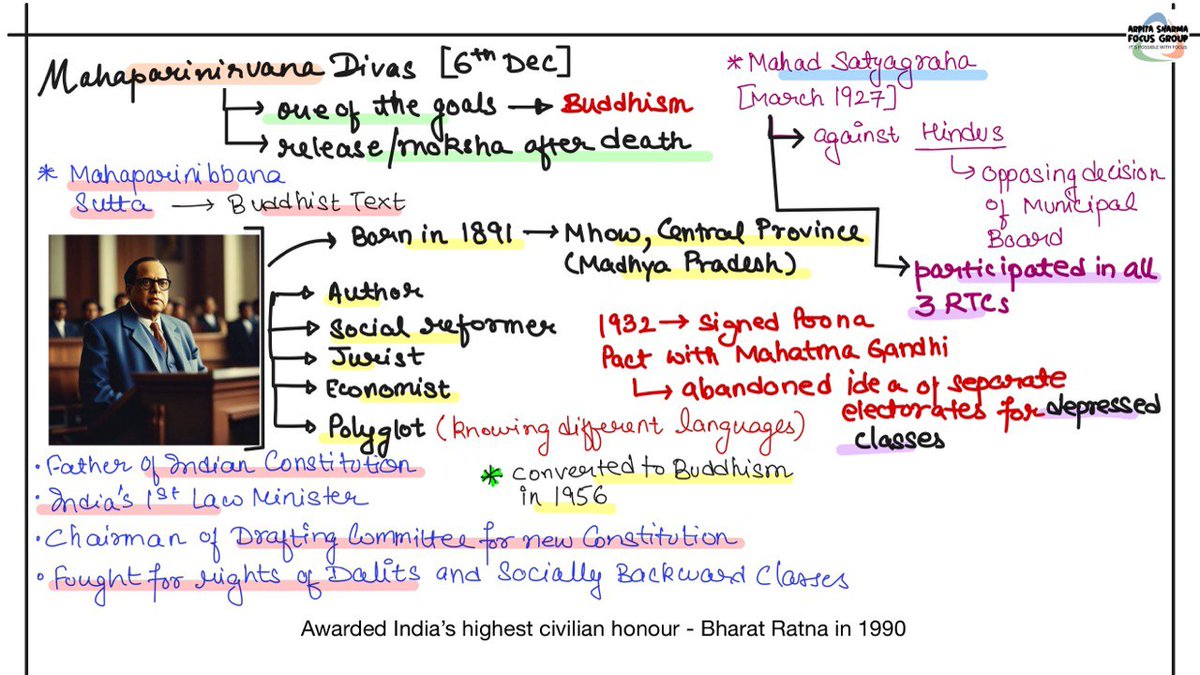 ARPITA SHARMA
FOCUS GROUP
IT'S POSSIBLE WITH FOCUS
Mahaparinirvana Divas [6th Dec]
one of the goals → Buddhism
release/moksha after death
* Mahaparinibbana
Sutta → Buddhist Text
* Mahad Satyagraha
[March 1927]
against Hindus
opposing decision
of Municipal
Board
participated in all
3 RTCs
Born in 1891 → Mhow, Central Province
(Madhya Pradesh)
Author
Social reformer
Jurist
Economist
Polyglot (knowing different languages)
1932 → signed Poona
Pact with Mahatma Gandhi
abandoned idea of separate
electorates for depressed
classes
* converted to Buddhism
in 1956
• Father of Indian Constitution
• India's 1st Law Minister
• Chairman of Drafting Committee for new Constitution
• Fought for rights of Dalits and Socially Backward Classes
Awarded India's highest civilian honour - Bharat Ratna in 1990